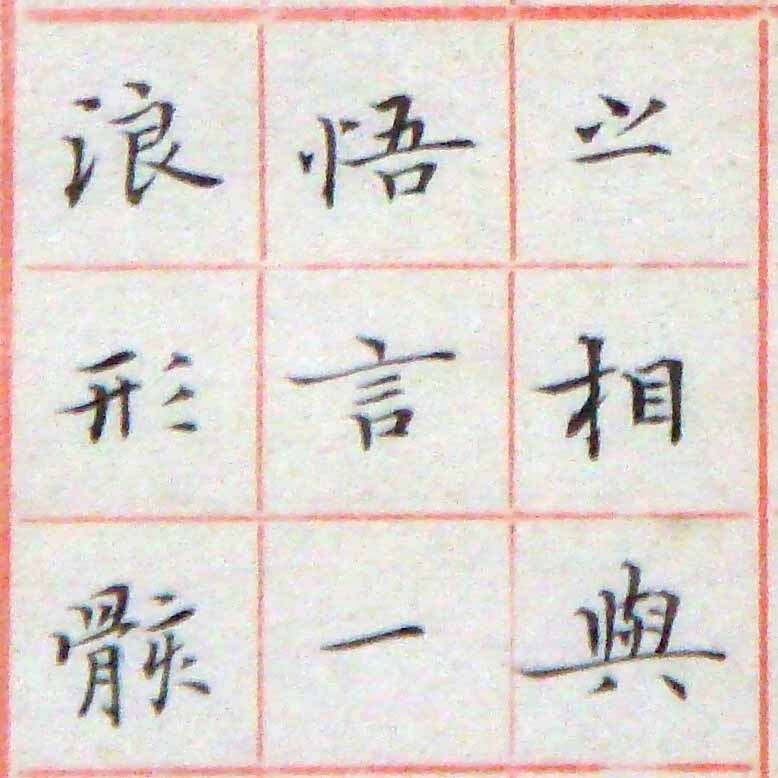 之相與
悟言一
浪形骸